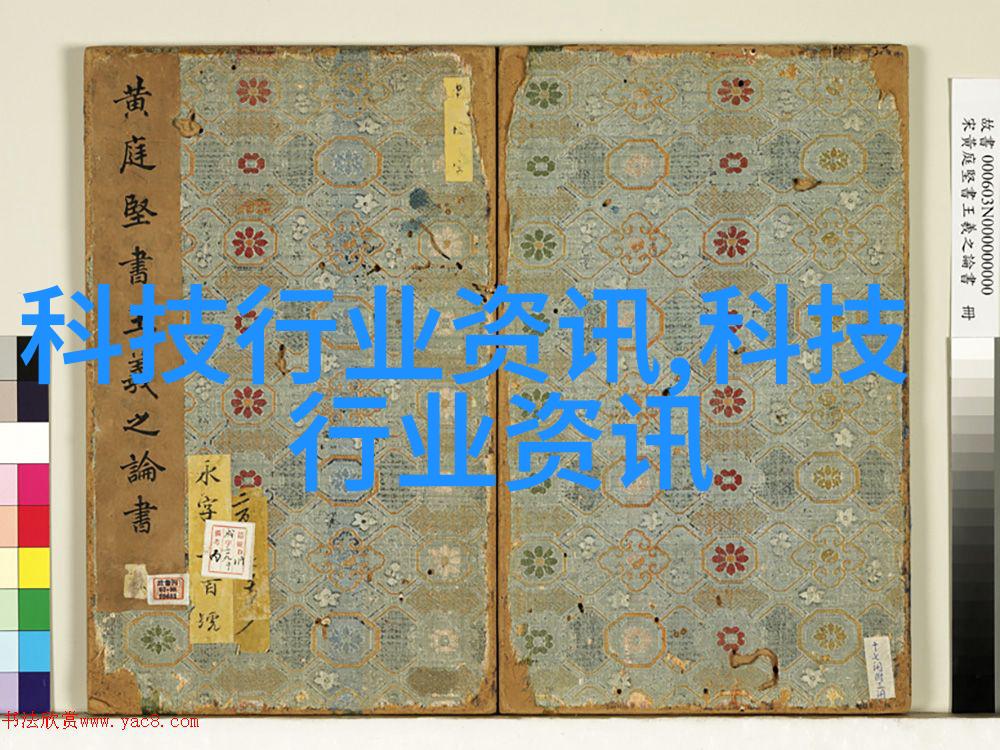 科技行业资讯,科技
行业资讯
黄庭堅書王羲之論書
永字
百號
故書 000603N000000000
宋黄庭堅書王羲之論書 冊
书法欣赏www.yac8.com